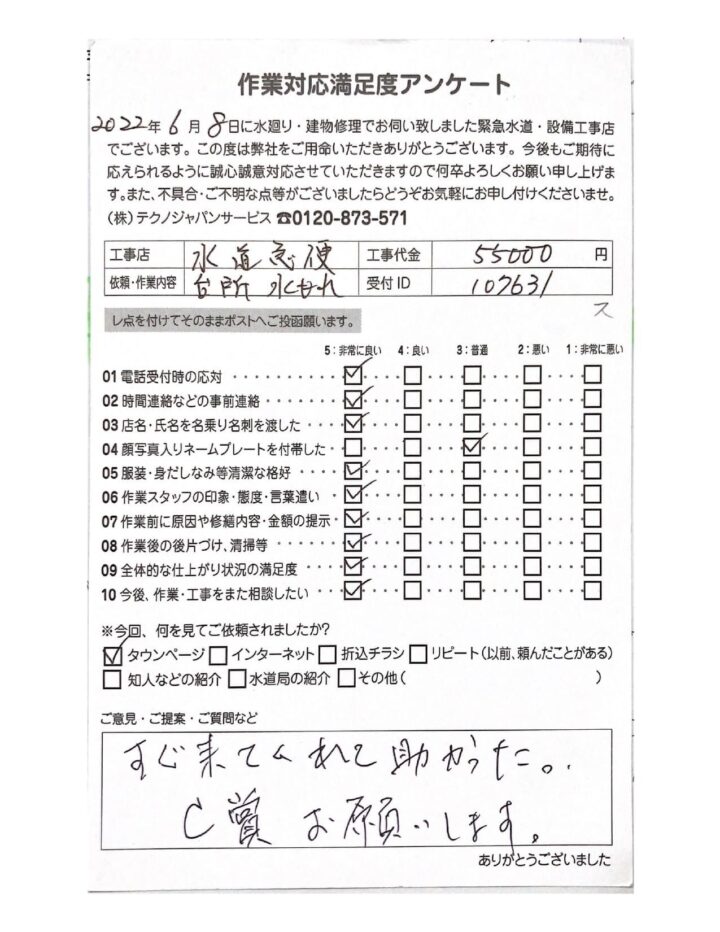 作業対応満足度アンケート
2022年6月8日に水廻り・建物修理でお伺い致しました緊急水道・設備工事店
でございます。この度は弊社をご用命いただきありがとうございます。今後もご期待に
応えられるように誠心誠意対応させていただきますので何卒よろしくお願い申し上げま
す。また、不具合・ご不明な点等がございましたらどうぞお気軽にお申し付けくださいませ。
(株)テクノジャパンサービス ☎0120-873-571
工事店 水道急便 工事代金 55000 円
依頼・作業内容 台所 水もれ 受付ID 107631
ス
レ点を付けてそのままポストへご投函願います。
5:非常に良い 4:良い 3:普通 2:悪い 1:非常に悪い
01 電話受付時の応対
02 時間連絡などの事前連絡
03 店名・氏名を名乗り名刺を渡した
04 顔写真入りネームプレートを付帯した
05 服装・身だしなみ等清潔な格好
06 作業スタッフの印象・態度・言葉遣い
07 作業前に原因や修繕内容・金額の提示
08 作業後の後片づけ、清掃等
09 全体的な仕上がり状況の満足度
10 今後、作業・工事をまた相談したい
※今回、何を見てご依頼されましたか?
タウンページ インターネット 折込チラシ リピート(以前、頼んだことがある)
知人などの紹介 水道局の紹介 その他( )
ご意見・ご提案・ご質問など
すぐ来てくれて助かった。
C賞 お願いします。
ありがとうございました